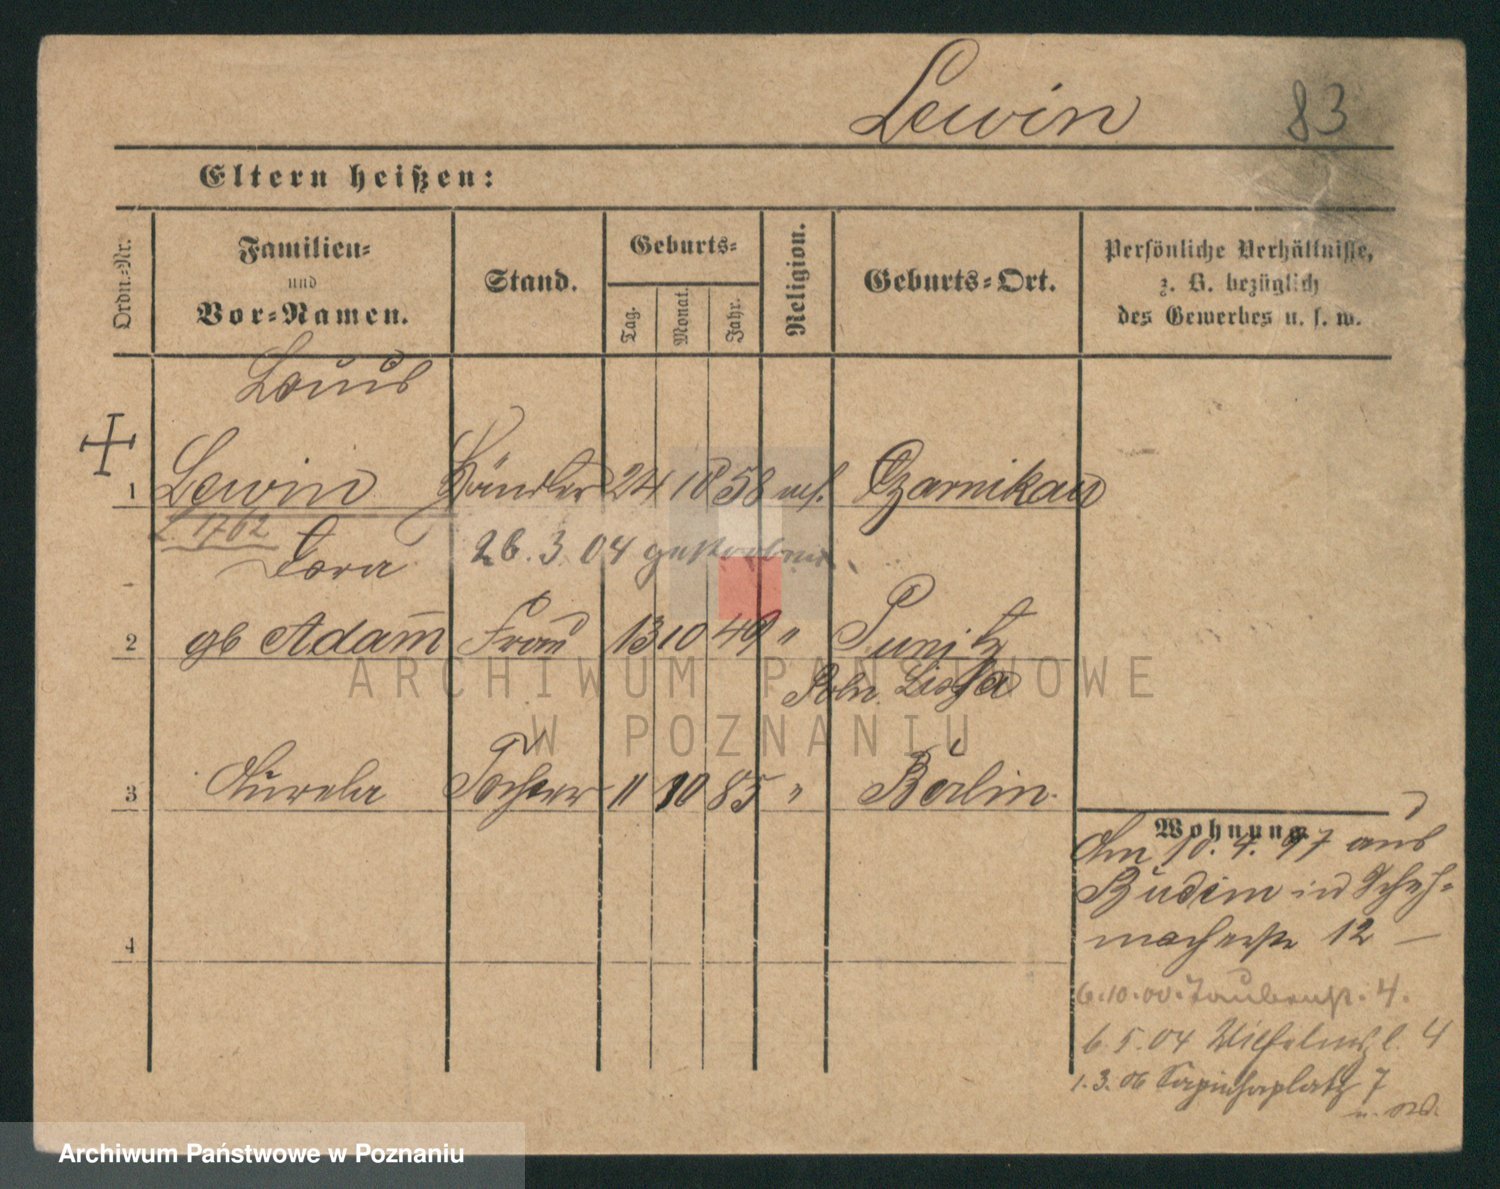 Lewin 83
Eltern heißen:
Ordn.-Nr. Familien- und Vor-Namen. Stand. Geburts- Tag. Monat. Jahr. Religion. Geburts-Ort. Persönliche Verhältnisse, z. B. bezüglich des Gewerbes u. s. w.
Louis
1 Lewin Händler 24 10 58 Czarnikau
L 1762
Dora 26.3.04 gestorben
2 gb Adam Frau 13 10 49 " Punitz
Poln. Lissa
3 Aurelia Tochter 11 10 85 " Berlin
4
Wohnung
Am 10.4.97 aus
in Schuh-
macherstr 12 –
6.10.00. Taubenstr. 4.
6.5.04 Wilhelmspl. 4
1.3.06 Sapiehaplatz 7
ARCHIWUM PAŃSTWOWE
W POZNANIU
Archiwum Państwowe w Poznaniu